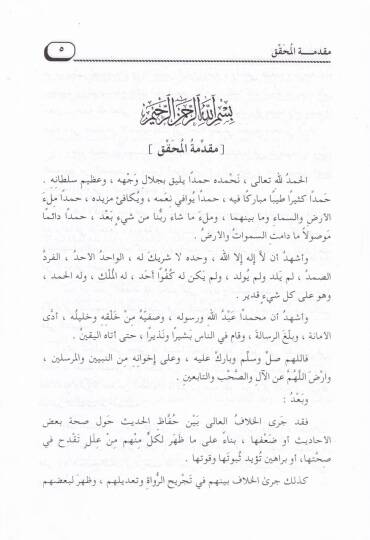 مقدمـــة المُحَقّق
٥
بِسْمِ اللَّهِ الرَّحْمَنِ الرَّحِيمِ
[ مقدّمةُ المُحَقّق ]
الحمدُ لله تعالى ، نَحْمَده حمداً يليق بجلال وَجْهه ، وعظيم سلطانه .
حَمداً كثيراً طيباً مباركاً فيه ، حمداً يُوافي نِعَمه ، ويُكافئ مزيده ، حمداً مِلْءَ
الأرضِ والسماءِ وما بينهما ، وملءَ ما شاء ربُّنا من شيءٍ بَعْد ، حمداً دائماً
مَوصولاً ما دامت السمواتُ والأرضُ .
وأشهدُ أن لا إله إلا الله ، وحده لا شريكَ له ، الواحدُ الأحدُ ، الفردُ
الصمدُ ، لم يَلد ولم يُولد ، ولم يكن له كُفُوًا أحَد ، له المُلْك ، وله الحمد ،
وهو على كل شيءٍ قدير .
وأشهدُ أن محمداً عَبْدُ اللهِ ورسوله ، وصفيُّهُ مِنْ خَلْقهِ وخليلُه ، أدَّى
الأمانة ، وبلَّغَ الرسالةَ ، وقام في الناس بَشيراً ونَذيراً ، حتى أتاه اليقينُ .
فاللهم صلِّ وسلِّم وباركْ عليه ، وعلى إخوانهِ من النبيين والمرسلين ،
وارْضَ اللَّهُمَّ عن الآلِ والصَّحْبِ والتابعين .
وبَعْدُ :
فقد جَرى الخلافُ العالى بَيْن حُفَّاظِ الحديث حَول صحة بعض
الأحاديث أو ضَعْفها ، بناءً على ما ظَهَر لكلٍّ منْهم مِنْ عللٍ تَقْدح في
صِحَّتها، أو براهين تُؤيد ثُبوتَها وقوتَها .
كذلك جرىٰ الخلاف بينهم في تَجْريح الرُّواةِ وتعديلهم ، وظهرَ لبعضهم